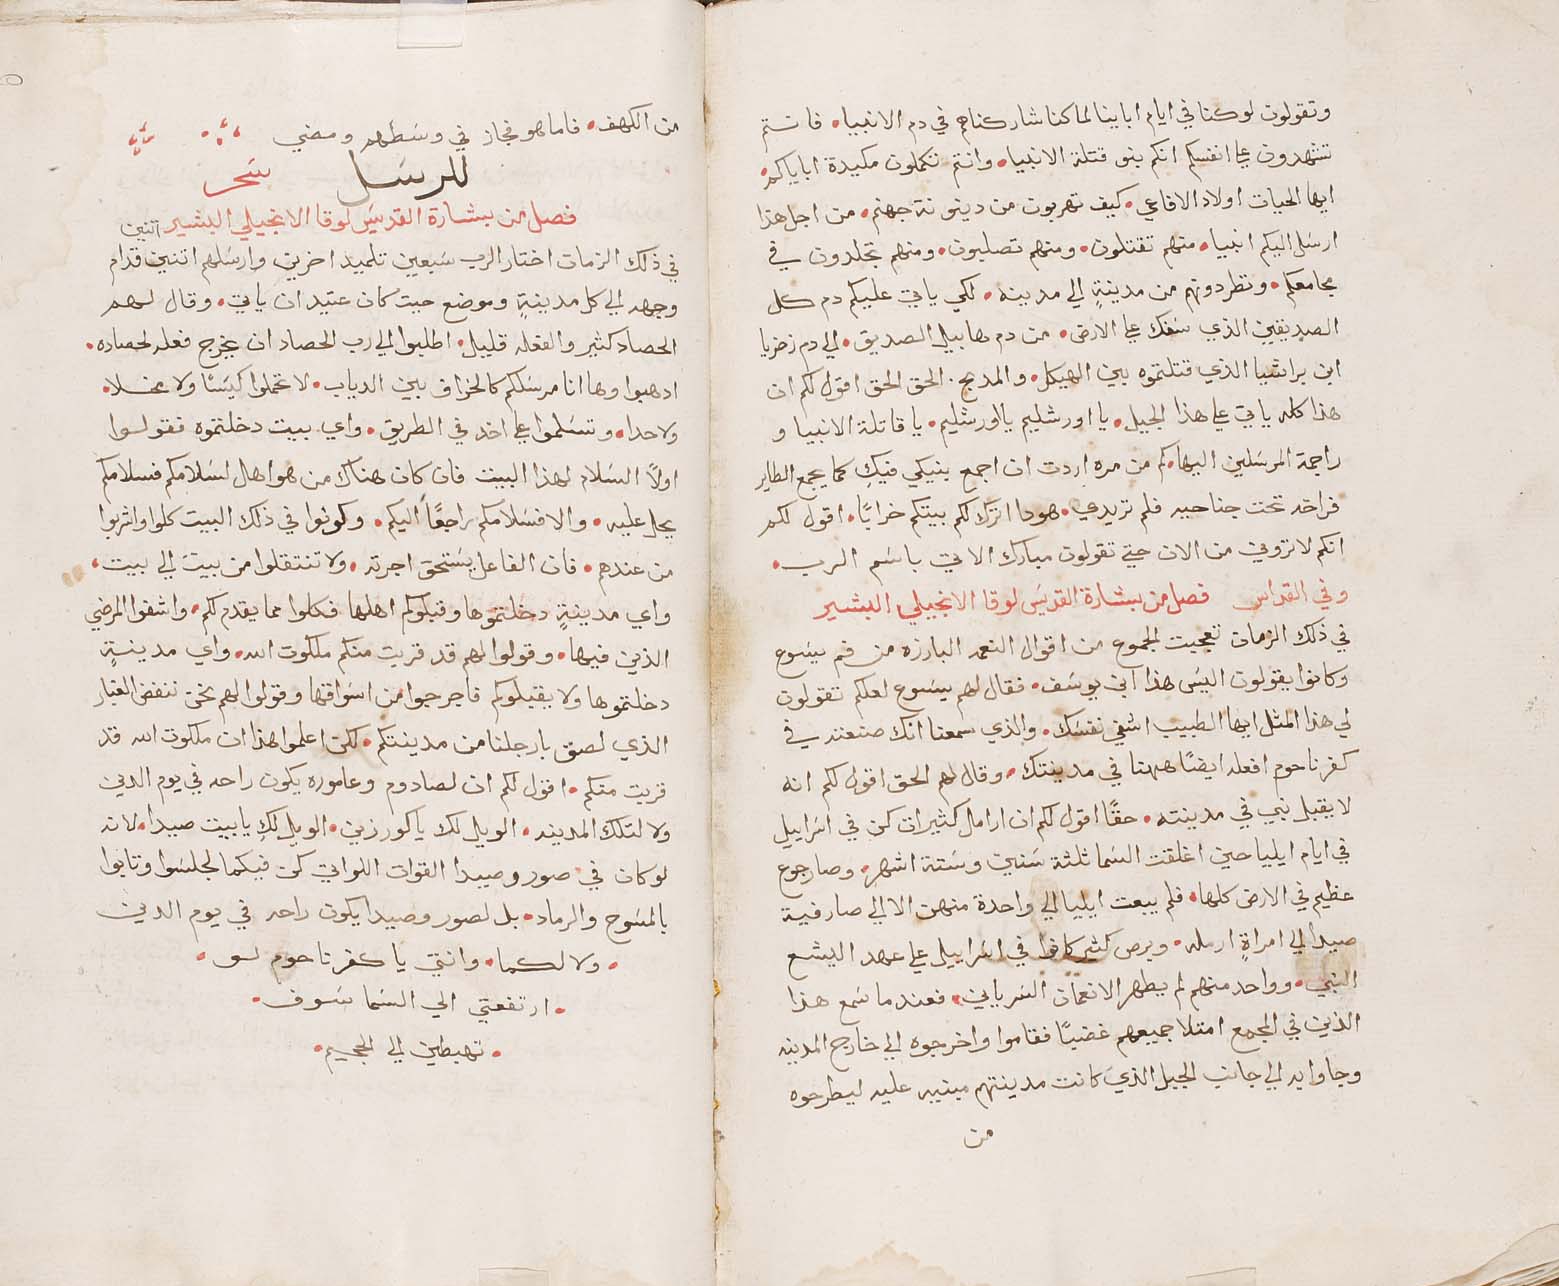 وتقولون لو كنا في ايام ابايينا لما كنا شاركناهم في دم الانبيا. فانتم
تشهدون علي انفسكم انكم بنو قتلة الانبيا. وانتم تكملون مكيدة اباياكم.
ايها الحيات اولاد الافاعي. كيف تهربون من دينونة جهنم. من اجل هذا
ارسل اليكم انبيا. منهم تقتلون. ومنهم تصلبون. ومنهم تجلدون في
مجامعكم. وتطردونهم من مدينةٍ الي مدينه. لكي ياتي عليكم دم كل
الصديقين الذي سفك علي الارض. من دم هابيل الصديق. الي دم زخريا
ابن براشيا الذي قتلتموه بين الهيكل. والمدبح. الحق الحق اقول لكم ان
هذا كله ياتي علي هذا الجيل. يا اورشليم يااورشليم. يا قاتلة الانبيا و
راجمة المرسلين اليها. كم من مره اردت ان اجمع بنيكي فيكِ كما يجمع الطاير
فراخه تحت جناحيه فلم تريدي. هودا اترك لكم بيتكم خرابًا. اقول لكم
انكم لا تروني من الان حتي تقولون مبارك الاتي باسم الرب.
وفي القداس فصل من بشارة القديس لوقا الانجيلي البشير
في ذلك الزمان تعجبت الجموع من اقوال النعمه البارزه من فم يسوع
وكانوا يقولون اليس هذا ابن يوسف. فقال لهم يسوع لعلكم تقولون
لي هذا المثل ايها الطبيب اشفي نفسك. والذي سمعنا انك صنعته في
كفرناحوم افعله ايضًا ههنا في مدينتك. وقال لهم الحق اقول لكم انه
لا يقبل نبي في مدينته. حقًا اقول لكم ان ارامل كثيرات كن في اسراييل
في ايام ايليا حين اغلقت السما ثلثة سنين وستة اشهر. وصار جوع
عظيم في الارض كلها. فلم يبعت ايليا الي واحدة منهن الا الي صارفية
صيدا الي امراةٍ ارمله. وبرص كثير كانوا في اسراييل علي عهد اليشع
النبي. وواحد منهم لم يطهر الا نعمان السرياني. فعند ما سمع هذا
الذين في المجمع امتلا جميعهم غضبًا فقاموا واخرجوه الي خارج المدينه
وجاوا به الي جانب الجبل الذي كانت مدينتهم مبنيه عليه ليطرحوه
من
من الكهف. فاما هو فجاز في وسطهم ومضي
للرسل سحر
فصل من بشارة القديس لوقا الانجيلي البشير اتنين
في ذلك الزمان اختار الرب سبعين تلميد اخرين وارسلهم اتنين قدام
وجهه الي كل مدينةٍ وموضع حيت كان عتيد ان ياتي. وقال لهم
الحصاد كثير والفعله قليل. اطلبوا الي رب الحصاد ان يخرج فعله لحصاده.
ادهبوا وها انا مرسلكم كالخراف بين الدياب. لا تحملوا كيسًا ولا مخلا.
ولا حدا. وتسلموا علي احد في الطريق. واي بيت دخلتموه فقولوا
اولًا السلام لهذا البيت فان كان هناك من هو اهل لسلامكم فسلامكم
يحل عليه. والا فسلامكم راجعًا اليكم. وكونوا في ذلك البيت كلوا واشربوا
من عندهم. فان الفاعل يستحق اجرته. ولا تنتقلوا من بيت الي بيت.
واي مدينةٍ دخلتموها وقبلوكم اهلها فكلوا مما يقدم لكم. واشفوا المرضي
الذين فيها. وقولوا لهم قد قربت منكم ملكوت الله. واي مدينةٍ
دخلتموها ولا يقبلوكم فاخرجوا من اسواقها وقولوا لهم نحن ننفض الغبار
الذي لصق بارجلنا من مدينتكم. لكن اعلموا هذا ان ملكوت الله قد
قربت منكم. اقول لكم ان لصادوم وعاموره يكون راحه في يوم الدين
ولا لتلك المدينه. الويل لك يا كورزين. الويل لكِ يا بيت صيدا. لانه
لو كان في صور وصيدا القوات اللواتي كن فيكما لجلسوا وتابوا
بالمسوح والرماد. بل لصور وصيدا يكون راحه في يوم الدين
. ولا لكما. وانتي يا كفرناحوم لو.
. ارتفعتي الي السما سوف.
. تهبطين الي الجحيم.